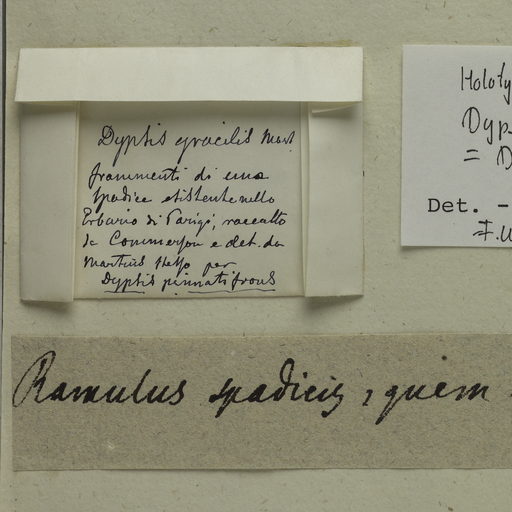 Dyptis gracilis Mart
frammenti di uno
spadice esistente nello
Erbario di Parigi, raccolto
da Commerson e det. da
Martius stesso per
Dyptis pinnatifrons
Holoty
Dyp
= D
Det. -
Ramulus spadicis, quem